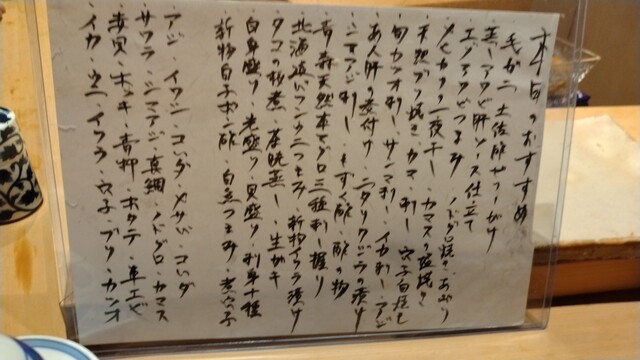 本日のおすすめ
毛がに 土佐酢ジュレがけ
蒸しアワビ肝ソース仕立て
エゾアワビつまみ ノドグロ焼き・あぶり
メヒカリ一夜干し カマスの塩焼き
天然ブリ焼き カマ 刺し 穴子白焼き
旬カツオ刺し サンマ刺し イカ刺し アジ
あん肝の煮付け ニタリクジラの漬け
シマアジ刺し もずく酢 酢の物
青森天然本マグロ三種刺し握り
北海道いバフンウニつまみ 新物イクラ漬け
タコの柔煮 茶碗蒸し 生ガキ
白身盛り 光盛り 貝盛り 刺身十種
新物白子ポン酢 白魚つまみ 煮穴子
アジ・イワシ・コハダ・〆サバ・コハダ
サワラ・シマアジ・真鯛・ノドグロ・カマス
赤貝・ホッキ・青柳・ホタテ・車エビ
イカ・ウニ・イクラ・穴子・ブリ・カツオ